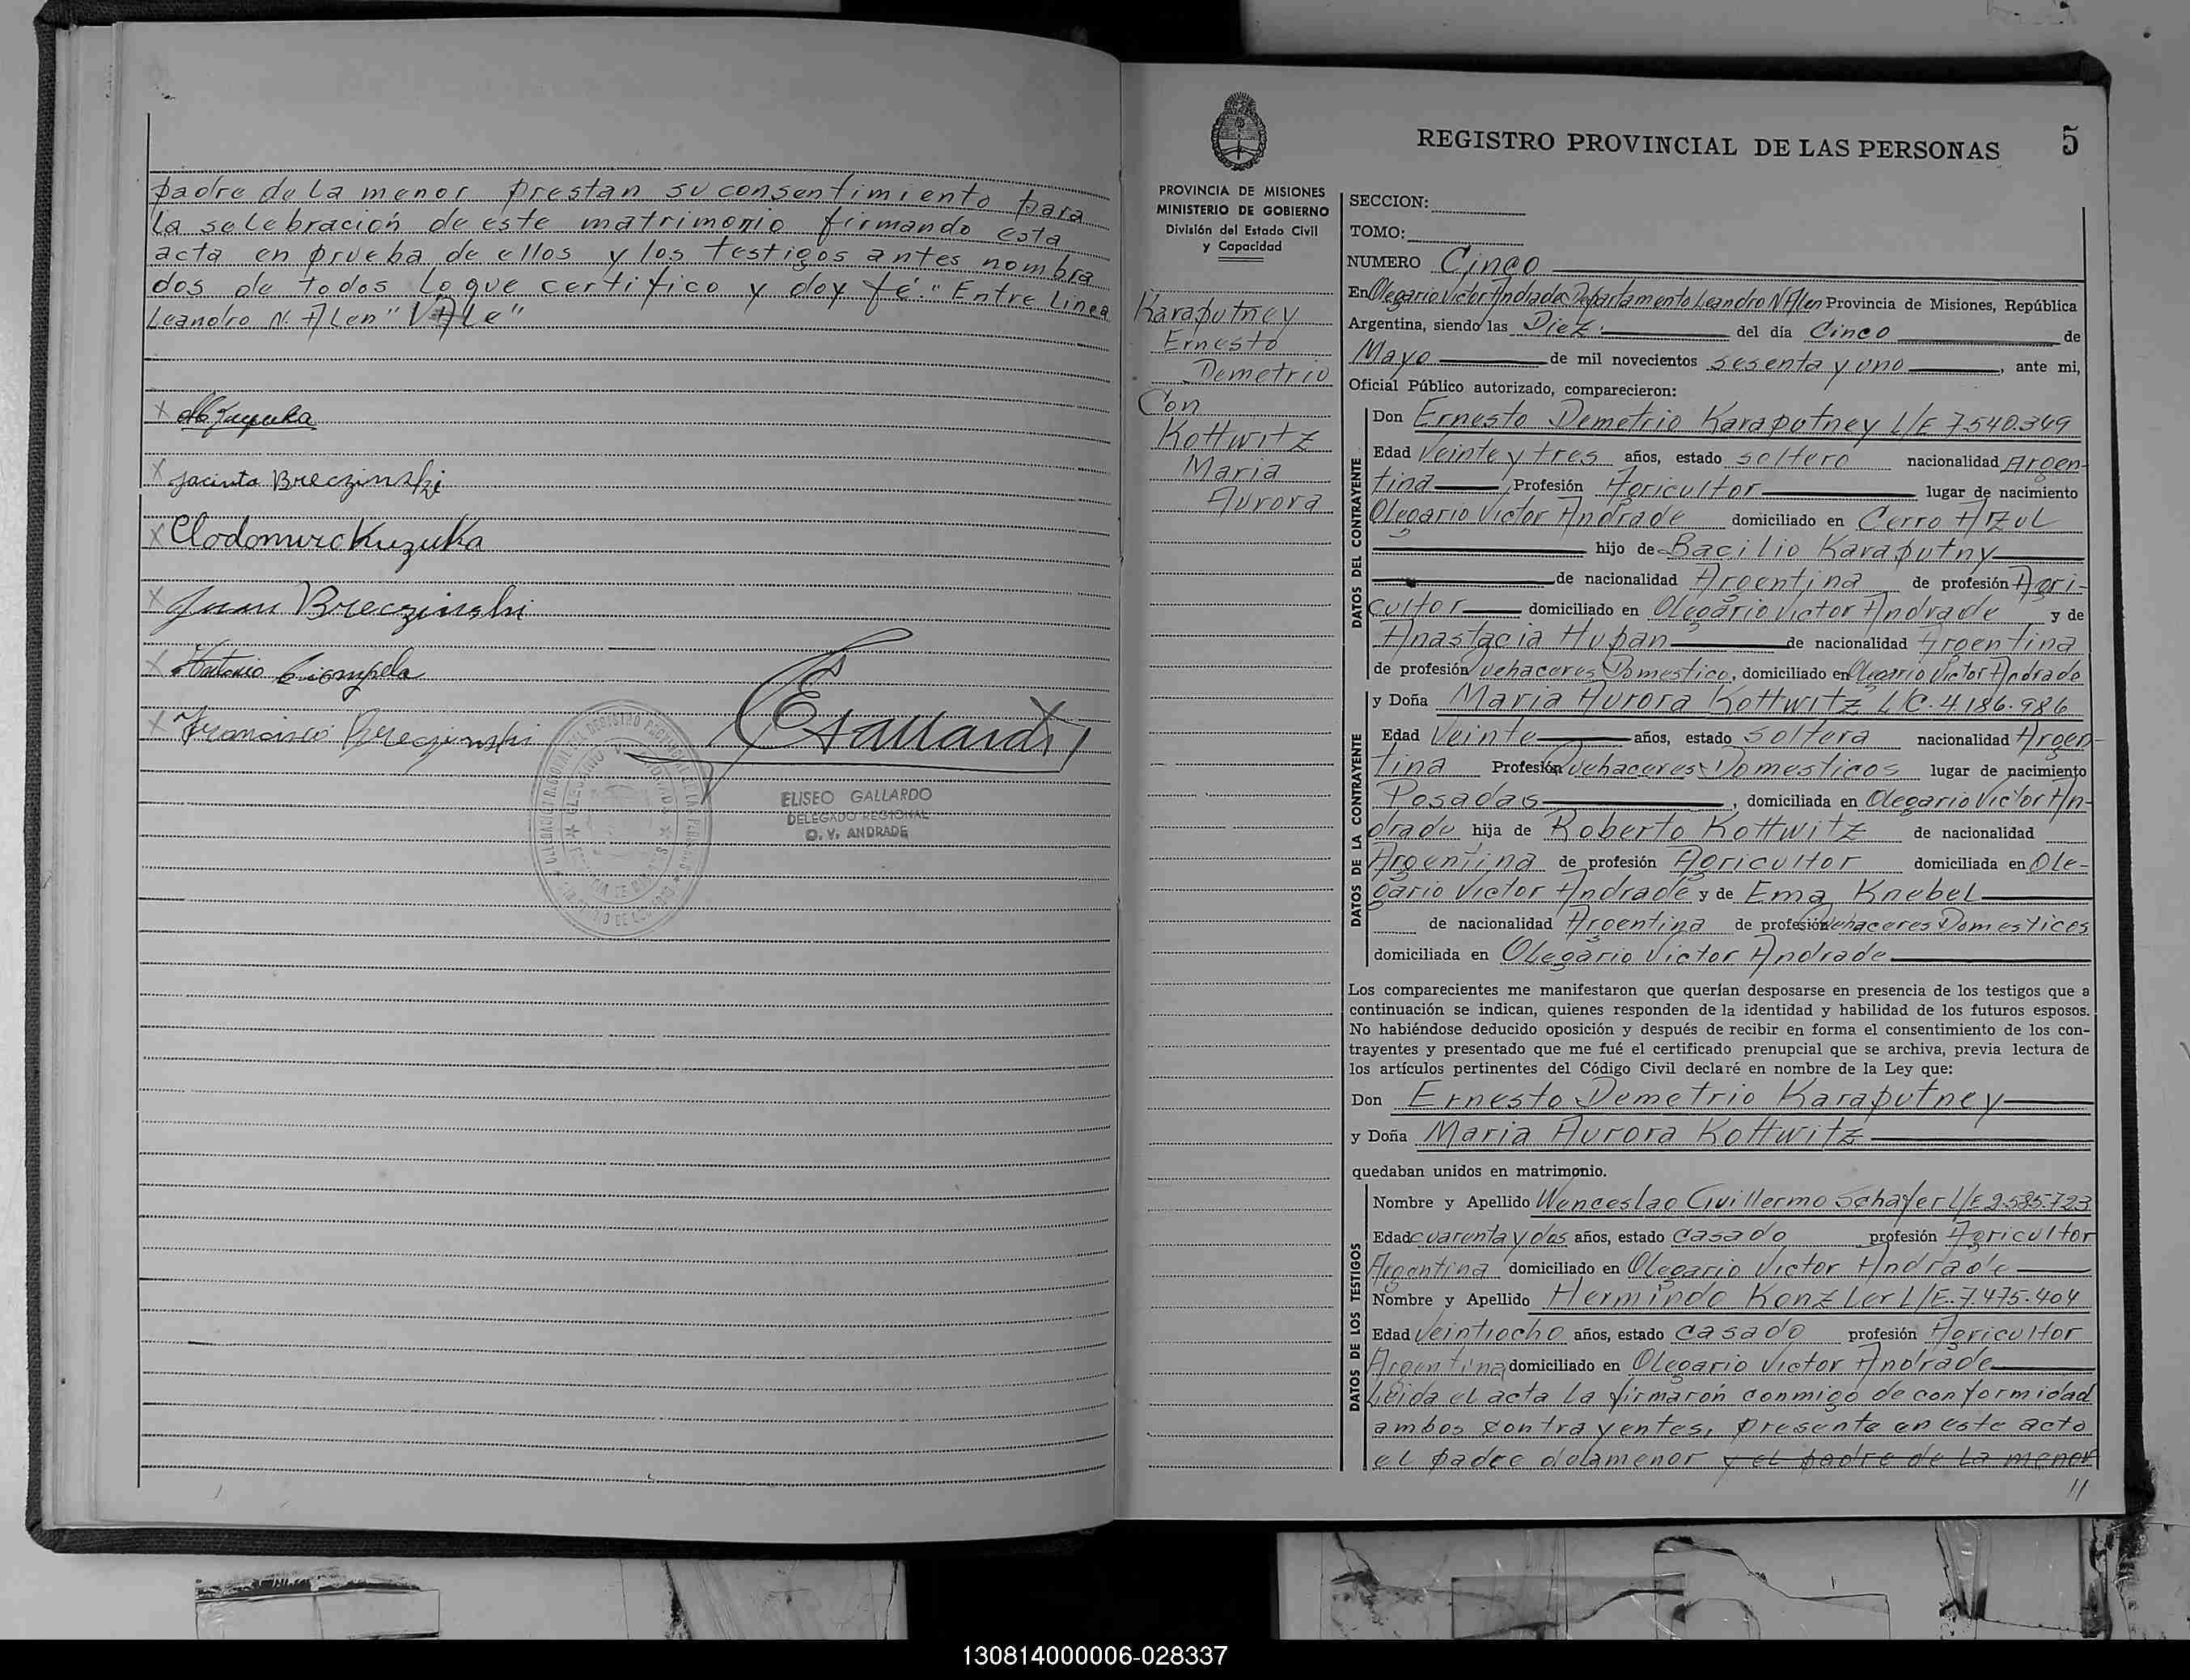 padre de la menor prestan su consentimiento para
la selebración de este matrimonio firmando esta
acta en prueba de ellos y los testigos antes nombra
dos de todos lo que certifico y doy fé." Entre Linea
Leandro N. Alen" VALe"
Jacinta Breczinski
Clodomiro Kuzuka
Juan Breczinski
Antonio
Francisco Breczinski
EGallardo
ELISEO GALLARDO
DELEGADO REGIONAL
O. V. ANDRADE
PROVINCIA DE MISIONES
MINISTERIO DE GOBIERNO
División del Estado Civil
y Capacidad
Karaputney
Ernesto
Demetrio
Con
Kottwitz
Maria
Aurora
REGISTRO PROVINCIAL DE LAS PERSONAS 5
SECCION:
TOMO:
NUMERO Cinco
En Olegario Victor Andrade Departamento Leandro N Alen Provincia de Misiones, República
Argentina, siendo las Diez del día Cinco de
Mayo de mil novecientos sesenta y uno, ante mi,
Oficial Público autorizado, comparecieron:
DATOS DEL CONTRAYENTE
Don Ernesto Demetrio Karaputney L/E 7.540.349
Edad Veinte y tres años, estado soltero nacionalidad Argen-
tina, Profesión Agricultor lugar de nacimiento
Olegario Victor Andrade domiciliado en Cerro Azul
hijo de Bacilio Karaputny
de nacionalidad Argentina de profesión Agri-
cultor domiciliado en Olegario Victor Andrade y de
Anastacia Hupan de nacionalidad Argentina
de profesión Quehaceres Domestico, domiciliado en Olegario Victor Andrade
DATOS DE LA CONTRAYENTE
y Doña Maria Aurora Kottwitz L/C. 4.186.986
Edad Veinte años, estado Soltera nacionalidad Argen-
tina Profesión Quehaceres Domesticos lugar de nacimiento
Posadas, domiciliada en Olegario Victor An-
drade hija de Roberto Kottwitz de nacionalidad
Argentina de profesión Agricultor domiciliada en Ole-
gario Victor Andrade y de Ema Knebel
de nacionalidad Argentina de profesión Quehaceres Domesticos
domiciliada en Olegario Victor Andrade
Los comparecientes me manifestaron que querían desposarse en presencia de los testigos que a
continuación se indican, quienes responden de la identidad y habilidad de los futuros esposos.
No habiéndose deducido oposición y después de recibir en forma el consentimiento de los con-
trayentes y presentado que me fué el certificado prenupcial que se archiva, previa lectura de
los artículos pertinentes del Código Civil declaré en nombre de la Ley que:
Don Ernesto Demetrio Karaputney
y Doña Maria Aurora Kottwitz
quedaban unidos en matrimonio.
DATOS DE LOS TESTIGOS
Nombre y Apellido Wenceslao Guillermo Schafer L/E 2.585.723
Edad cuarenta y dos años, estado Casado profesión Agricultor
Argentina domiciliado en Olegario Victor Andrade
Nombre y Apellido Hermindo Konzler L/E. 7.475.404
Edad Veintiocho años, estado Casado profesión Agricultor
Argentina domiciliado en Olegario Victor Andrade
Leida el acta la firmarón conmigo de conformidad
ambos contrayentes, presente en este acto
el padre delamenor y el padre de la menor
//
130814000006-028337